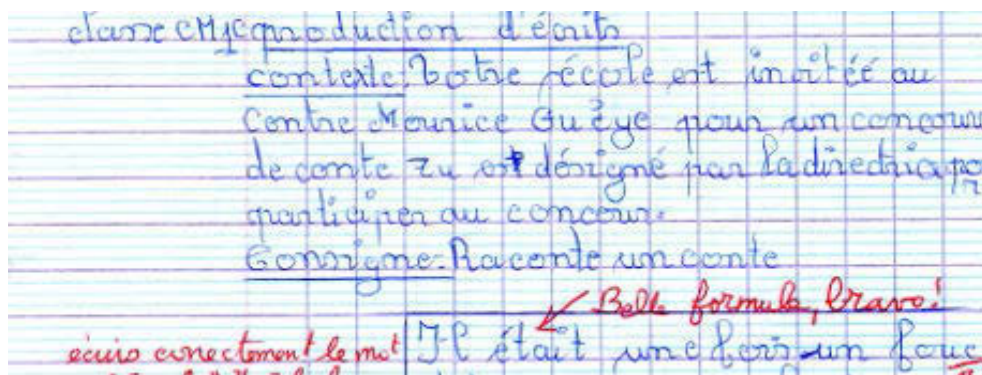 classe CM1C production d'écrits
contexte: Votre école est invitée au
Centre Maurice Guèye pour un concour
de conte Tu est désigné par la directrice po
participer au concour.
Consigne: Raconte un conte
Belle formule, bravo!
écris correctement le mot Il était une fois un fouc